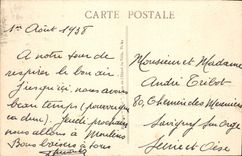 CARTE POSTALE
1er Août 1938
A notre tour de
respirer le bon air
Jusqu'ici, nous avons
beau temps (pourvu que
ça dure). Jeudi prochain
nous allons à
Bons baisers à tous
Monsieur et Madame
André Tribot
80, Chemin des Meuniers
Savigny sur Orge
Seine et Oise